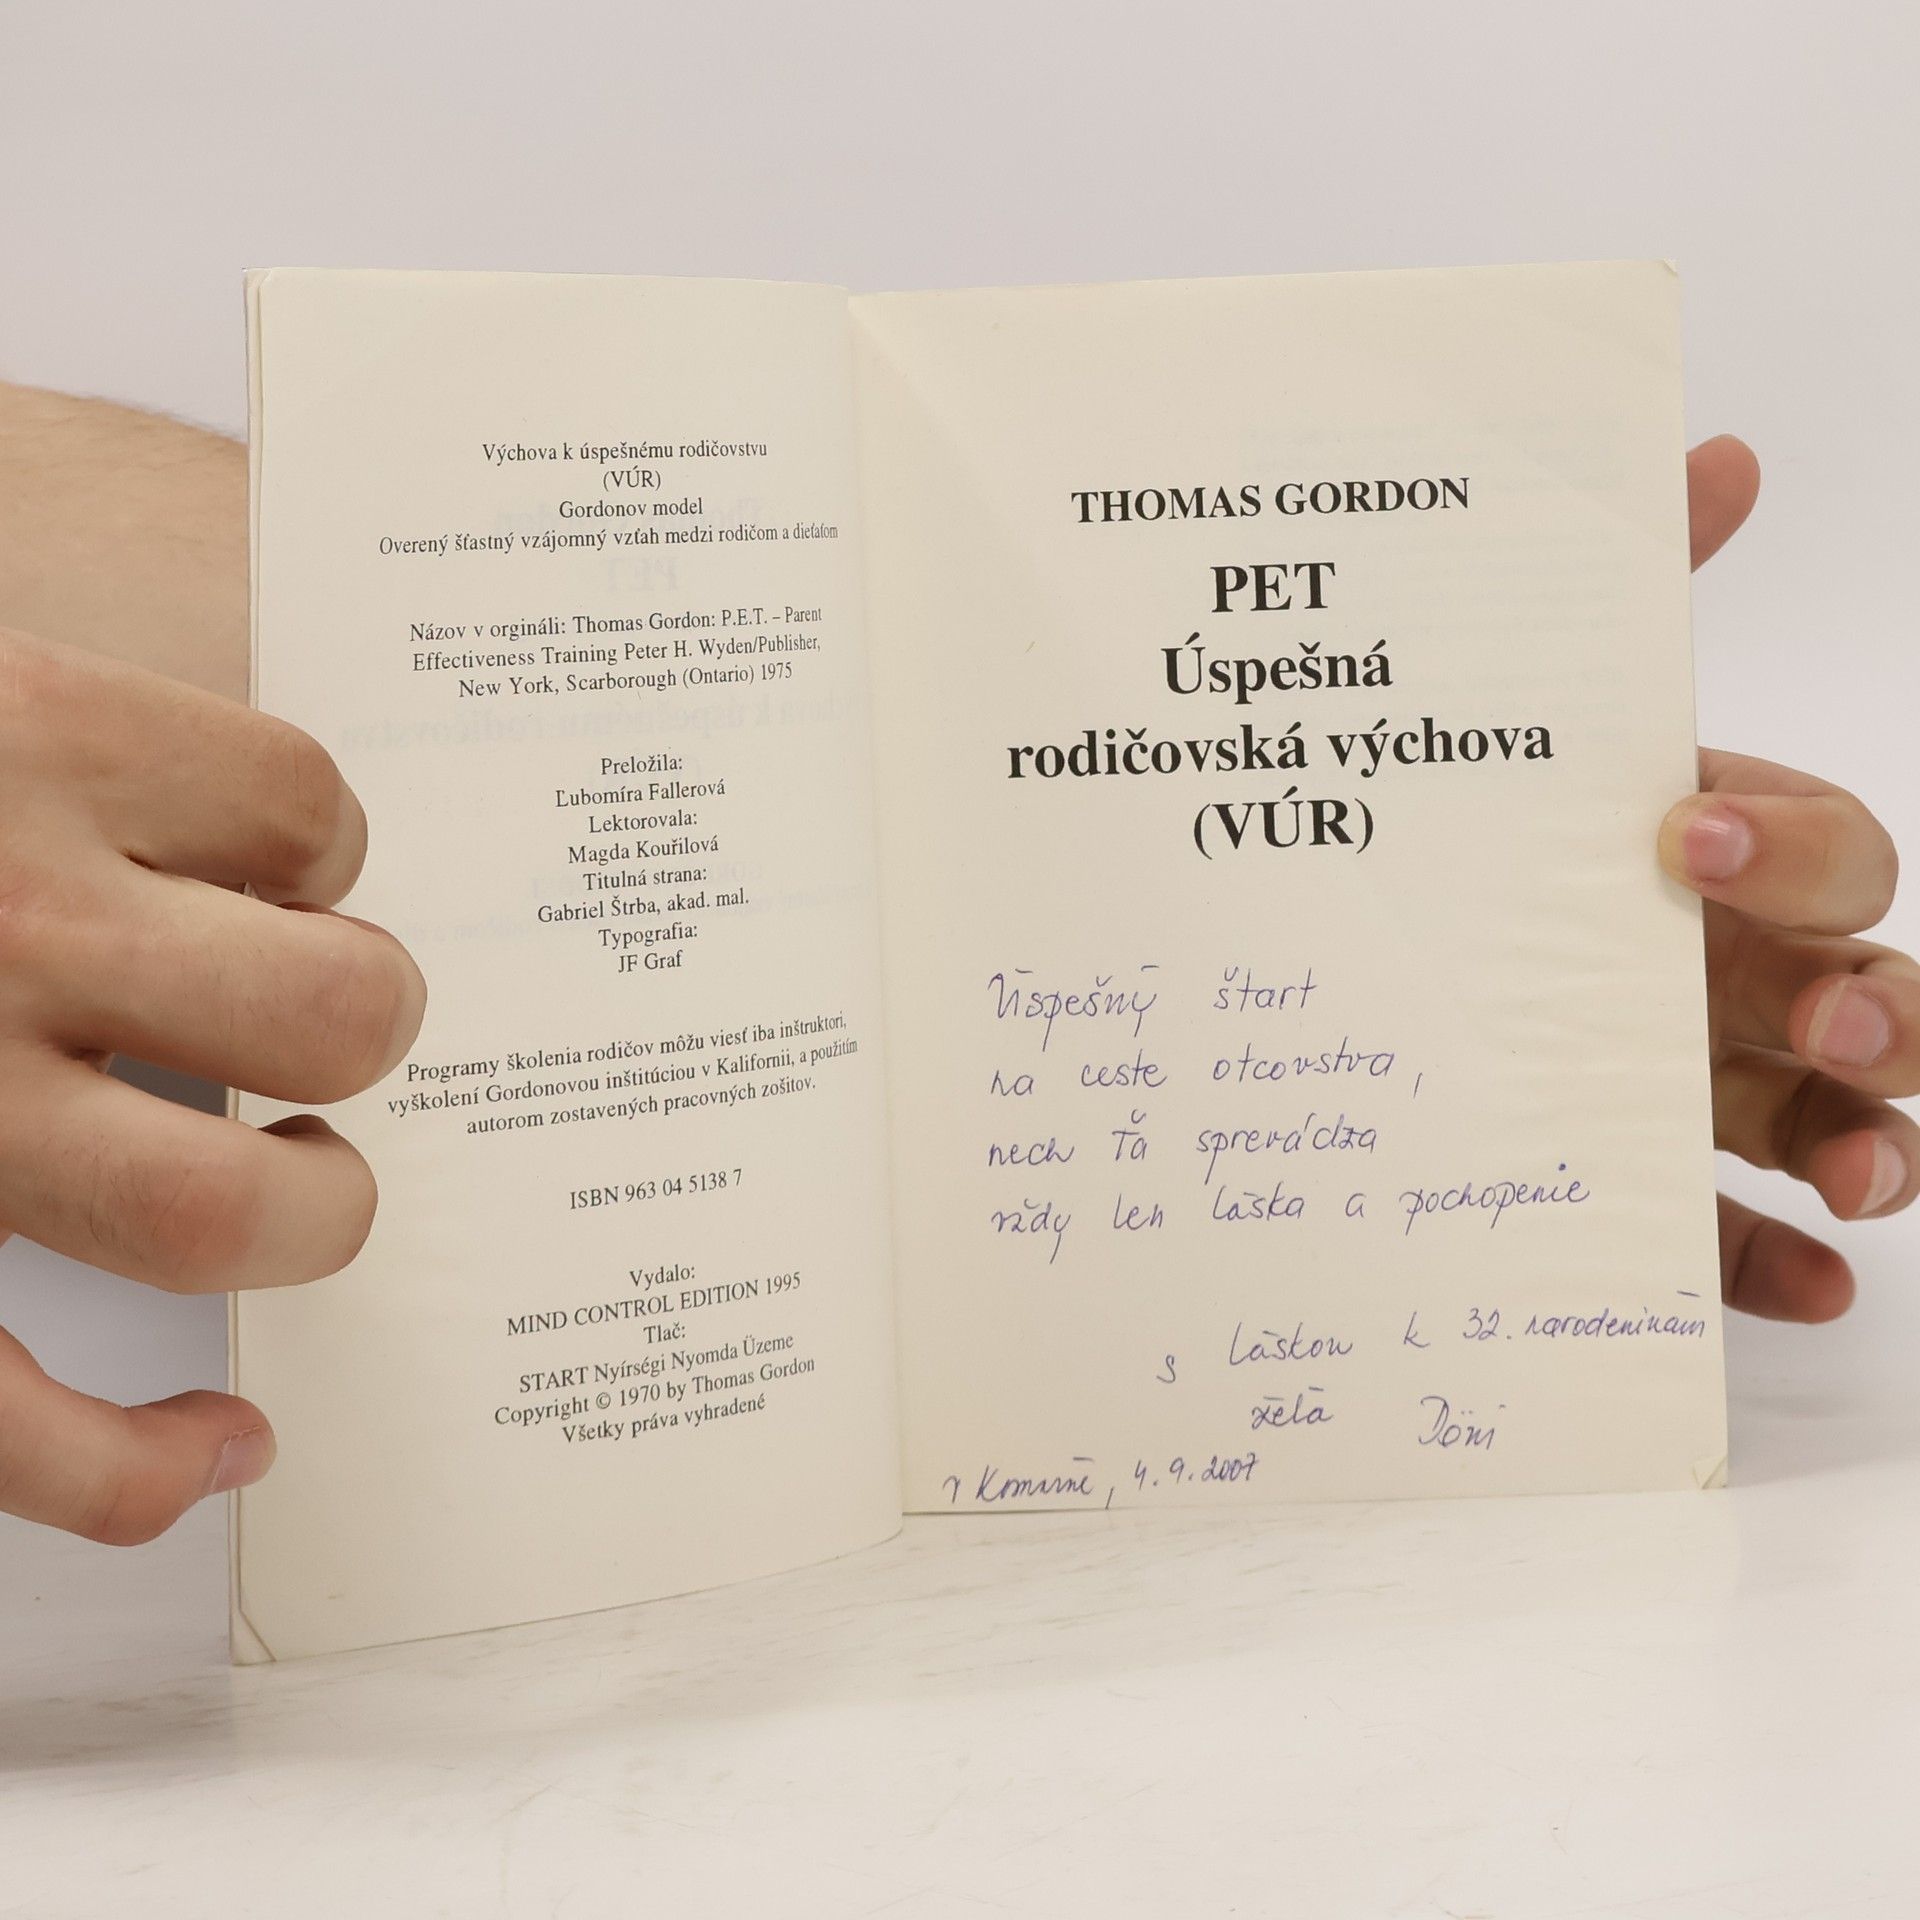 Výchova k úspešnému rodičovstvu
(VÚR)
Gordonov model
Overený šťastný vzájomný vzťah medzi rodičom a dieťaťom
Názov v orgináli: Thomas Gordon: P.E.T. – Parent
Effectiveness Training Peter H. Wyden/Publisher,
New York, Scarborough (Ontario) 1975
Preložila:
Ľubomíra Fallerová
Lektorovala:
Magda Kouřilová
Titulná strana:
Gabriel Štrba, akad. mal.
Typografia:
JF Graf
Programy školenia rodičov môžu viesť iba inštruktori,
vyškolení Gordonovou inštitúciou v Kalifornii, a použitím
autorom zostavených pracovných zošitov.
ISBN 963 04 5138 7
Vydalo:
MIND CONTROL EDITION 1995
Tlač:
START Nyírségi Nyomda Üzeme
Copyright © 1970 by Thomas Gordon
Všetky práva vyhradené
THOMAS GORDON
PET
Úspešná
rodičovská výchova
(VÚR)
Úspešný štart
na ceste otcovstva,
nech Ťa sprevádza
vždy len láska a pochopenie
s láskou k 32. narodeninám
želá
v Komárně, 4.9.2007